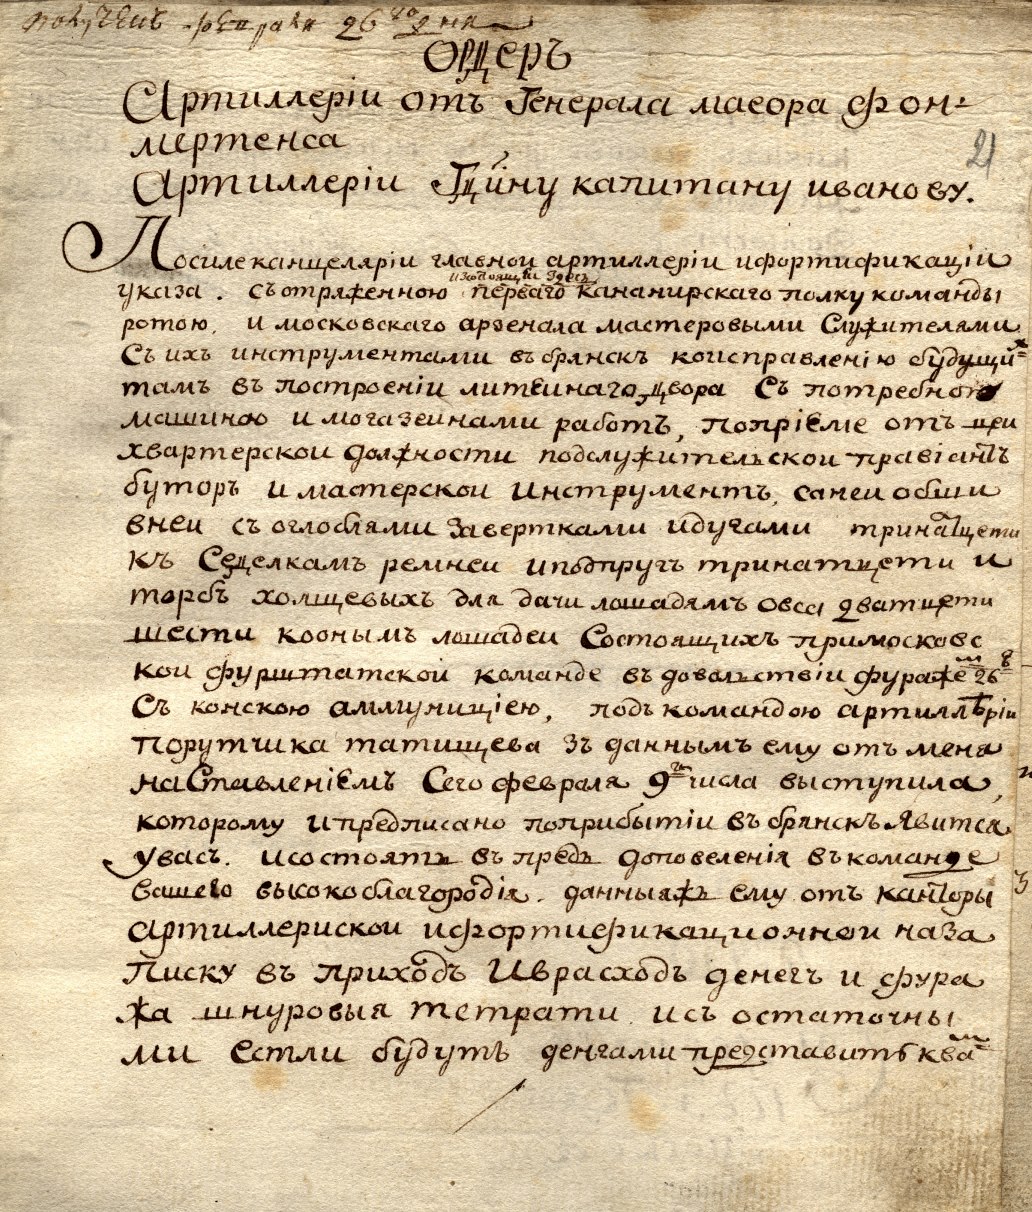 полученъ февраля 26 го дня
ОРДЕРЪ
Артиллеріи отъ Генерала маеора фон-
мертенса
21
Артиллеріи Гдину капитану иванову.
Посиле канцеляріи главнои артиллеріи ифортификаціи
изсостоящеи здесь
указа . съотряженною перваго кананирскаго полку команды
ротою, и московскаго арзенала мастеровыми Служителями
Съ ихъ инструментами въ брянскъ коисправленію будущих
тамъ въ построеніи литеинаго двора Съ потребною
машиною и могазеинами работъ, поприеме отъ цеи
хвартерскои должности подслужительскои правіантъ
буторъ и мастерскои инструментъ, санеи обши
внеи съ оглоблями завертками идугами тринатцети
къ Седелкамъ ремнеи иподпругъ тринатцети и
торбъ холщевыхъ для дачи лошадямъ овса дватцети
шести коонымъ лошадеи Состоящихъ примосковс
кои фурштатскои команде въ довольствіи фуражемъ 26
Съ конскою аммуницiею, подъ командою артиллѣріи
Порутчика татищева зъ даннымъ ему отъ меня
наСтавленіемъ Сего февраля 9 г числа выступила,
которому ипредписано поприбытіи въ брянскъ явится
увасъ. исостоять въ предь доповеленія въ команде
вашего высокоблагородія. данныяжъ ему отъ канторы
артиллерискои ифортификационнои наза
писку въ приходъ Иврасходъ денегъ и фура
жа шнуровыя тетрати исъ остаточны
ми естли будутъ денгами представить квам